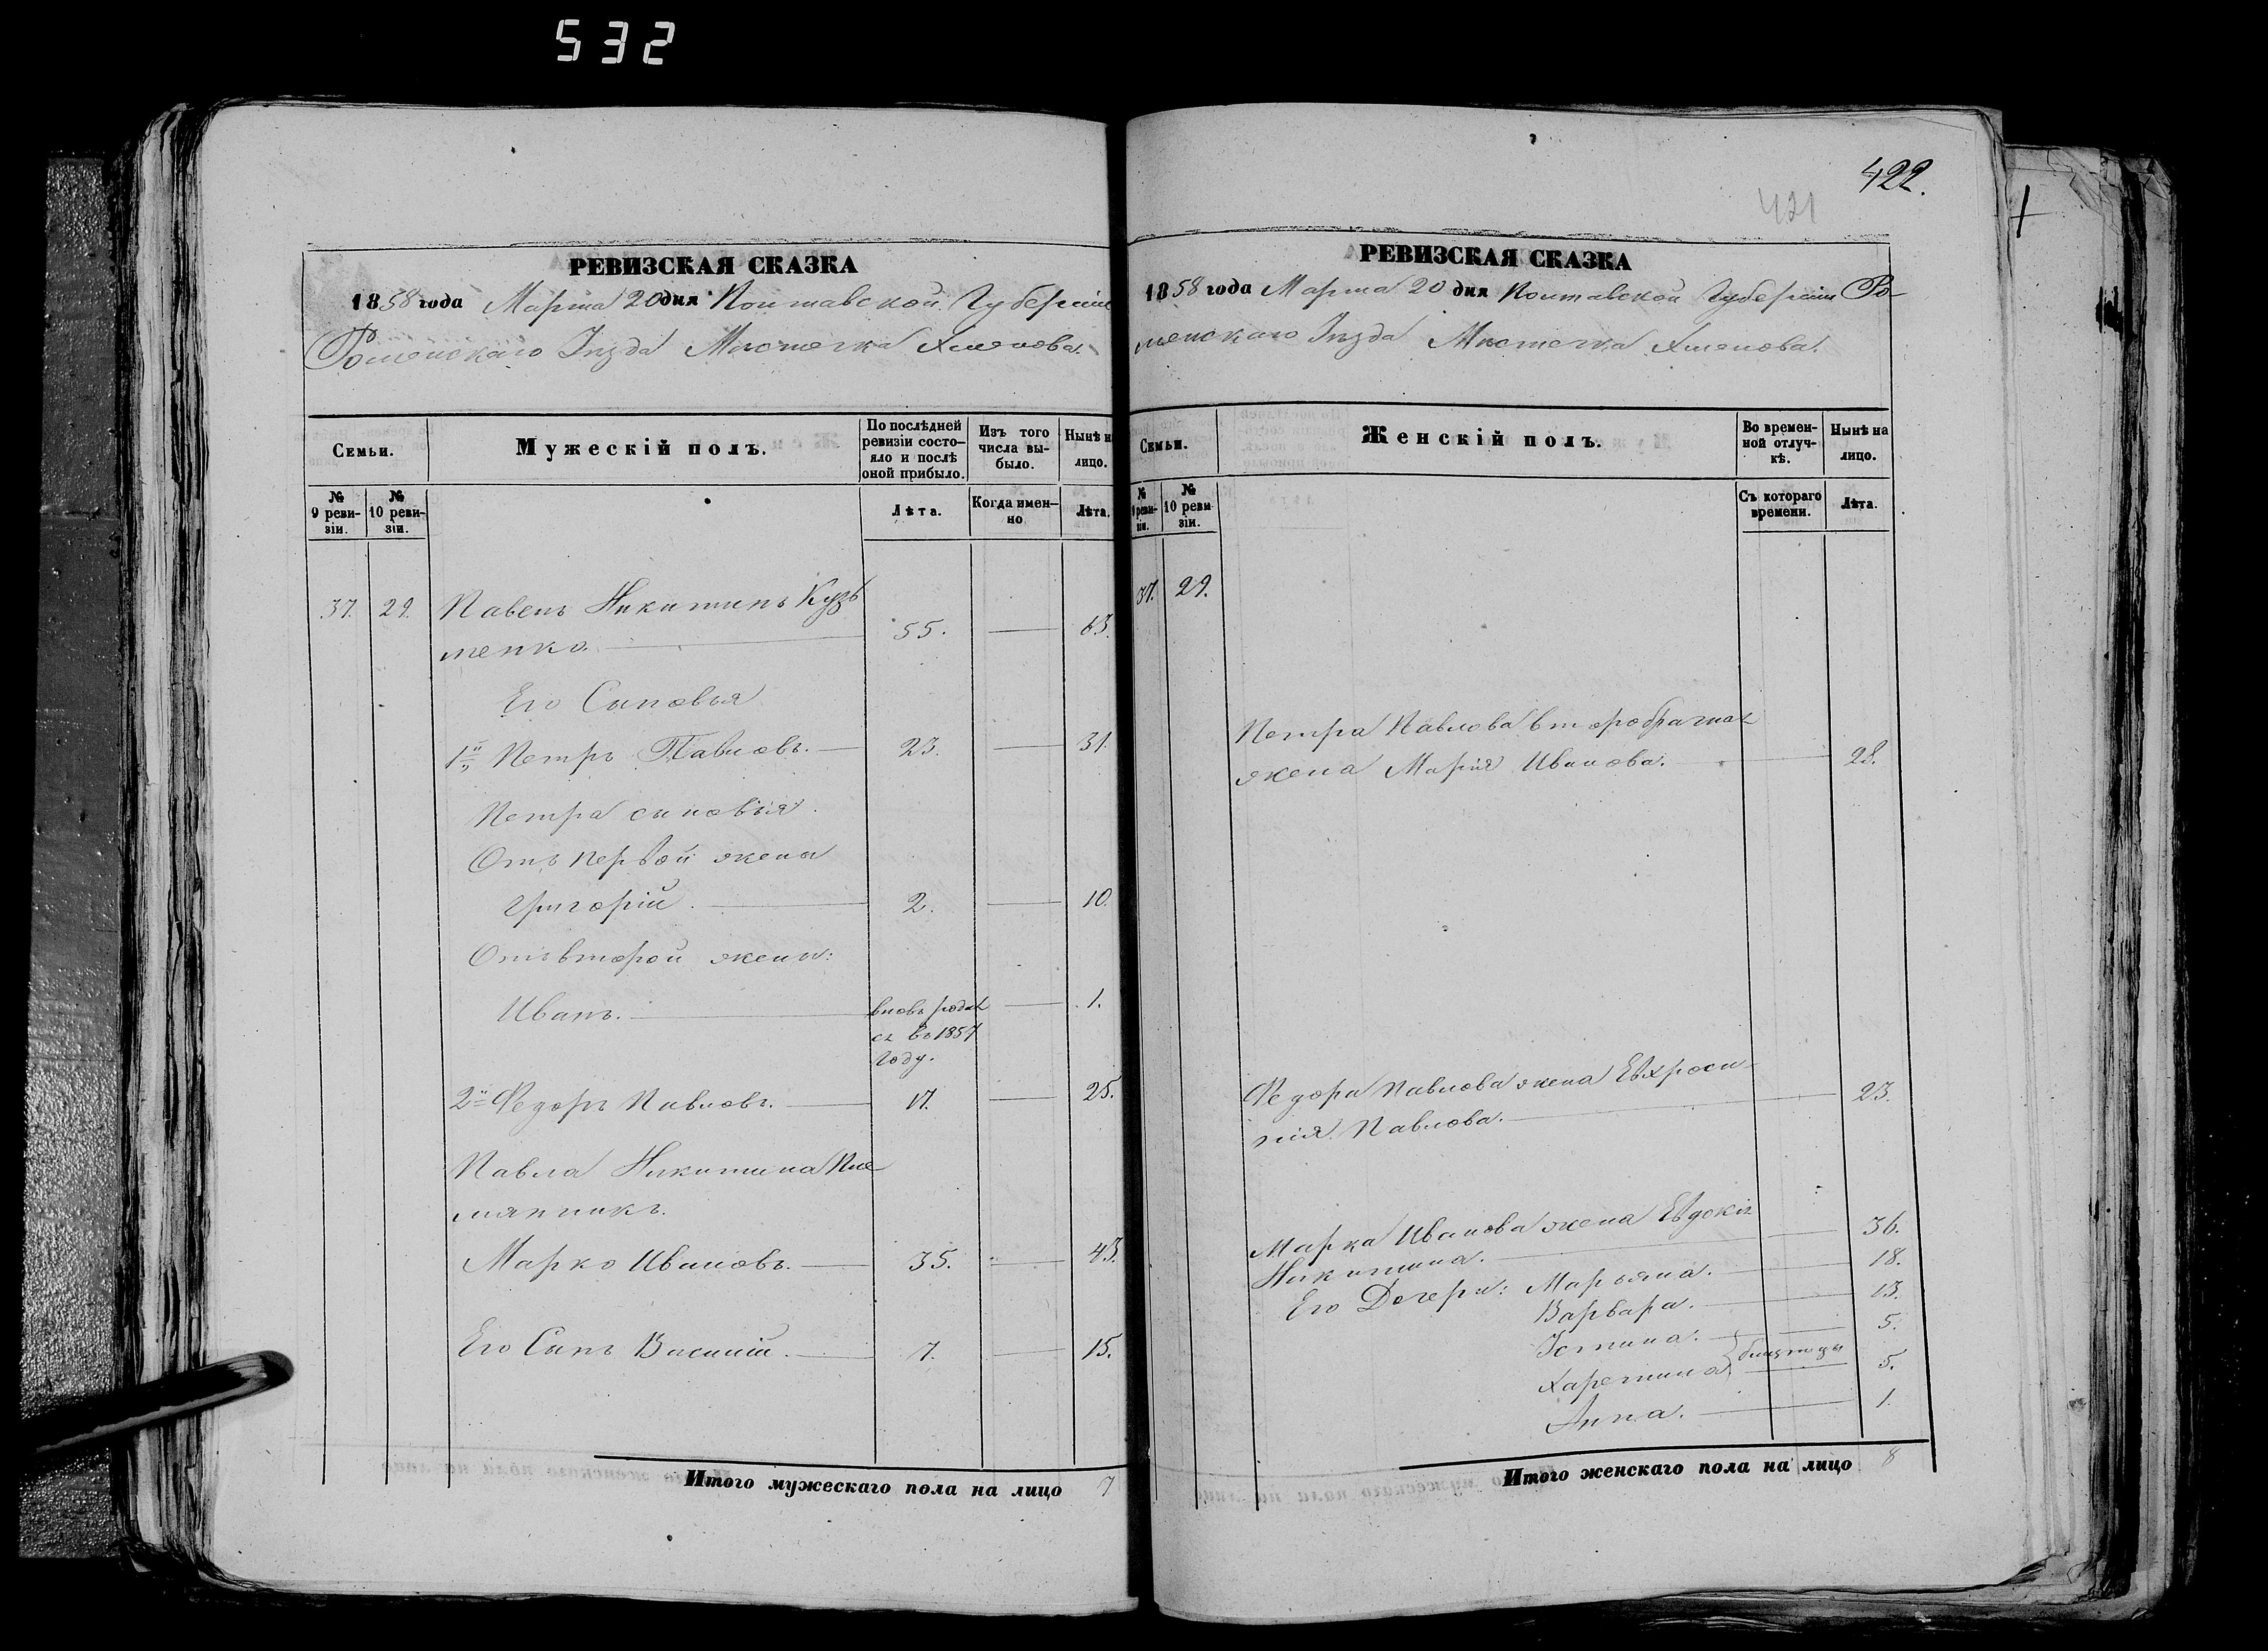 532
422.
421
РЕВИЗСКАЯ СКАЗКА
1858 года Марта 20 дня Полтавской Губерніи
Роменскаго Уѣзда Мѣстечка Хмелова.
Семьи.
Мужескій полъ.
По послѣдней ревизіи состо-
яло и послѣ оной прибыло.
Изъ того числа вы-
было.
Нынѣ н
лицо.
№ 9 реви-
зіи.
№ 10 реви-
зіи.
Лѣта.
Когда имен-
но
Лѣта.
37. 29. Павелъ Никитинъ Кузь
менко. 55. 63.
Его Сыновья
1й Петръ Павловъ. 23. 31.
Петра сыновья.
Отъ первой жены
Григорій. 2. 10.
Отъ второй жены:
Иванъ. вновь родил 1.
ся въ 1857
году.
2й Федоръ Павловъ. 17. 25.
Павла Никитина Пле
мянникъ.
Марко Ивановъ. 35. 43.
Его Сынъ Василій. 7. 15.
Итого мужескаго пола на лицо 7
РЕВИЗСКАЯ СКАЗКА
1858 года Марта 20 дня Полтавской Губерніи Ро-
менскаго Уѣзда Мѣстечка Хмелова.
Семьи.
Женскій полъ.
Во времен-
ной отлуч-
кѣ.
Нынѣ на
лицо.
№ 9 реви-
зіи.
№ 10 реви
зіи.
Съ котораго
времени.
Лѣта.
37. 29.
Петра Павлова второбрачная
жена Марія Иванова. 28.
Федора Павлова жена Евхроси-
нія Павлова. 23.
Марка Иванова жена Евдокія
Никитина. 36.
Его Дочери: Марьяна. 18.
Варвара. 13.
Устина. 5.
Харетина близнецы 5.
Анна. 1.
Итого женскаго пола на лицо 8